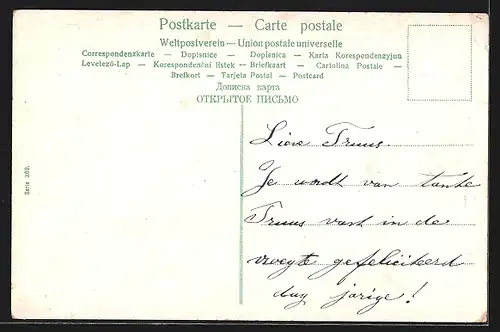 Postkarte — Carte postale
Weltpostverein — Union postale universelle
Correspondenzkarte — Dopisnice — Dopisnica — Karta Korespondenzyjun
Levelező-Lap — Korespondenční listek — Briefkaart — Cartolina Postale —
Brefkort — Tarjeta Postal — Postcard
Дописна карта
ОТКРЫТОЕ ПИСЬМО
Serie 369.
Lieve Truus.
Je wordt van tante
Truus vast in de
vroegte gefeliciteerd
dag jarige!